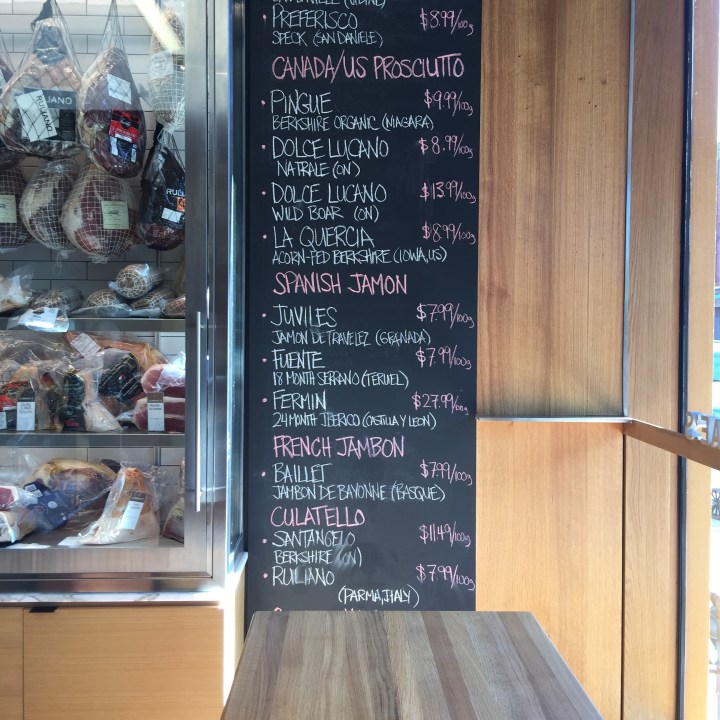 PREFERISCO $8.99/100g
SPECK (SAN DANIELE)
CANADA/US PROSCIUTTO
• PINGUE $9.99/100g
BERKSHIRE ORGANIC (NIAGARA)
• DOLCE LUCANO $8.99/100g
NATRALE (ON)
• DOLCE LUCANO $13.99/100g
WILD BOAR (ON)
• LA QUERCIA $8.99/100g
ACORN-FED BERKSHIRE (IOWA, US)
SPANISH JAMON
• JUVILES $7.99/100g
JAMON DE TRAVELEZ (GRANADA)
• FUENTE $7.99/100g
18 MONTH SERRANO (TERUEL)
• FERMIN $27.99/100g
24 MONTH IBERICO (CASTILLA Y LEON)
FRENCH JAMBON
• BAILLET $7.99/100g
JAMBON DE BAYONNE (BASQUE)
CULATELLO
• SANTANGELO $11.49/100g
BERKSHIRE (ON)
• RULIANO $7.99/100g
(PARMA, ITALY)
RULIANO